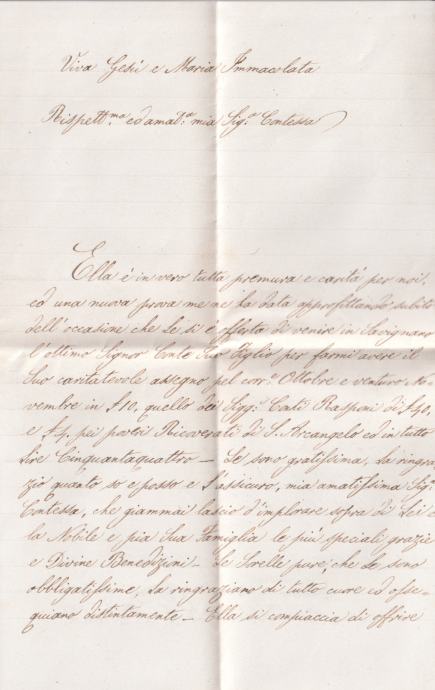 Viva Gesù e Maria Immacolata
Rispett.ma ed amat.a mia Sig.a Contessa
Ella è in vero tutta premura e carità per noi,
ed una nuova prova me ne ha data approfittando subito
dell'occasione che Le si è offerta di venire in
l'ottimo Signor Conte Suo Figlio per farmi avere il
Suo caritatevole assegno pel corr. Ottobre e venturo No-
vembre in £10, quello dei Sigg.i Rasponi di £40,
e £4 pei poveri Ricoverati di S. Arcangelo ed in tutto
Lire Cinquantaquattro — Le sono gratissima, La ringra-
zio quanto so e posso e L'assicuro, mia amatissima Sig.a
Contessa, che giammai lascio d'implorare sopra di Lei e
la Nobile e pia Sua Famiglia le più speciali grazie
e Divine Benedizioni — Le Sorelle pure, che Le sono
obbligatissime, La ringraziano di tutto cuore ed osse-
quiano distintamente — Ella si compiaccia di offrire